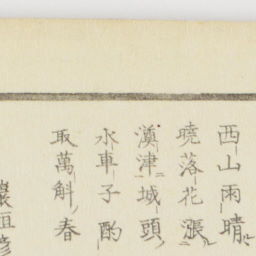 西山雨晴
曉落花漲
漢津城頭
水車子酌
取萬斛春